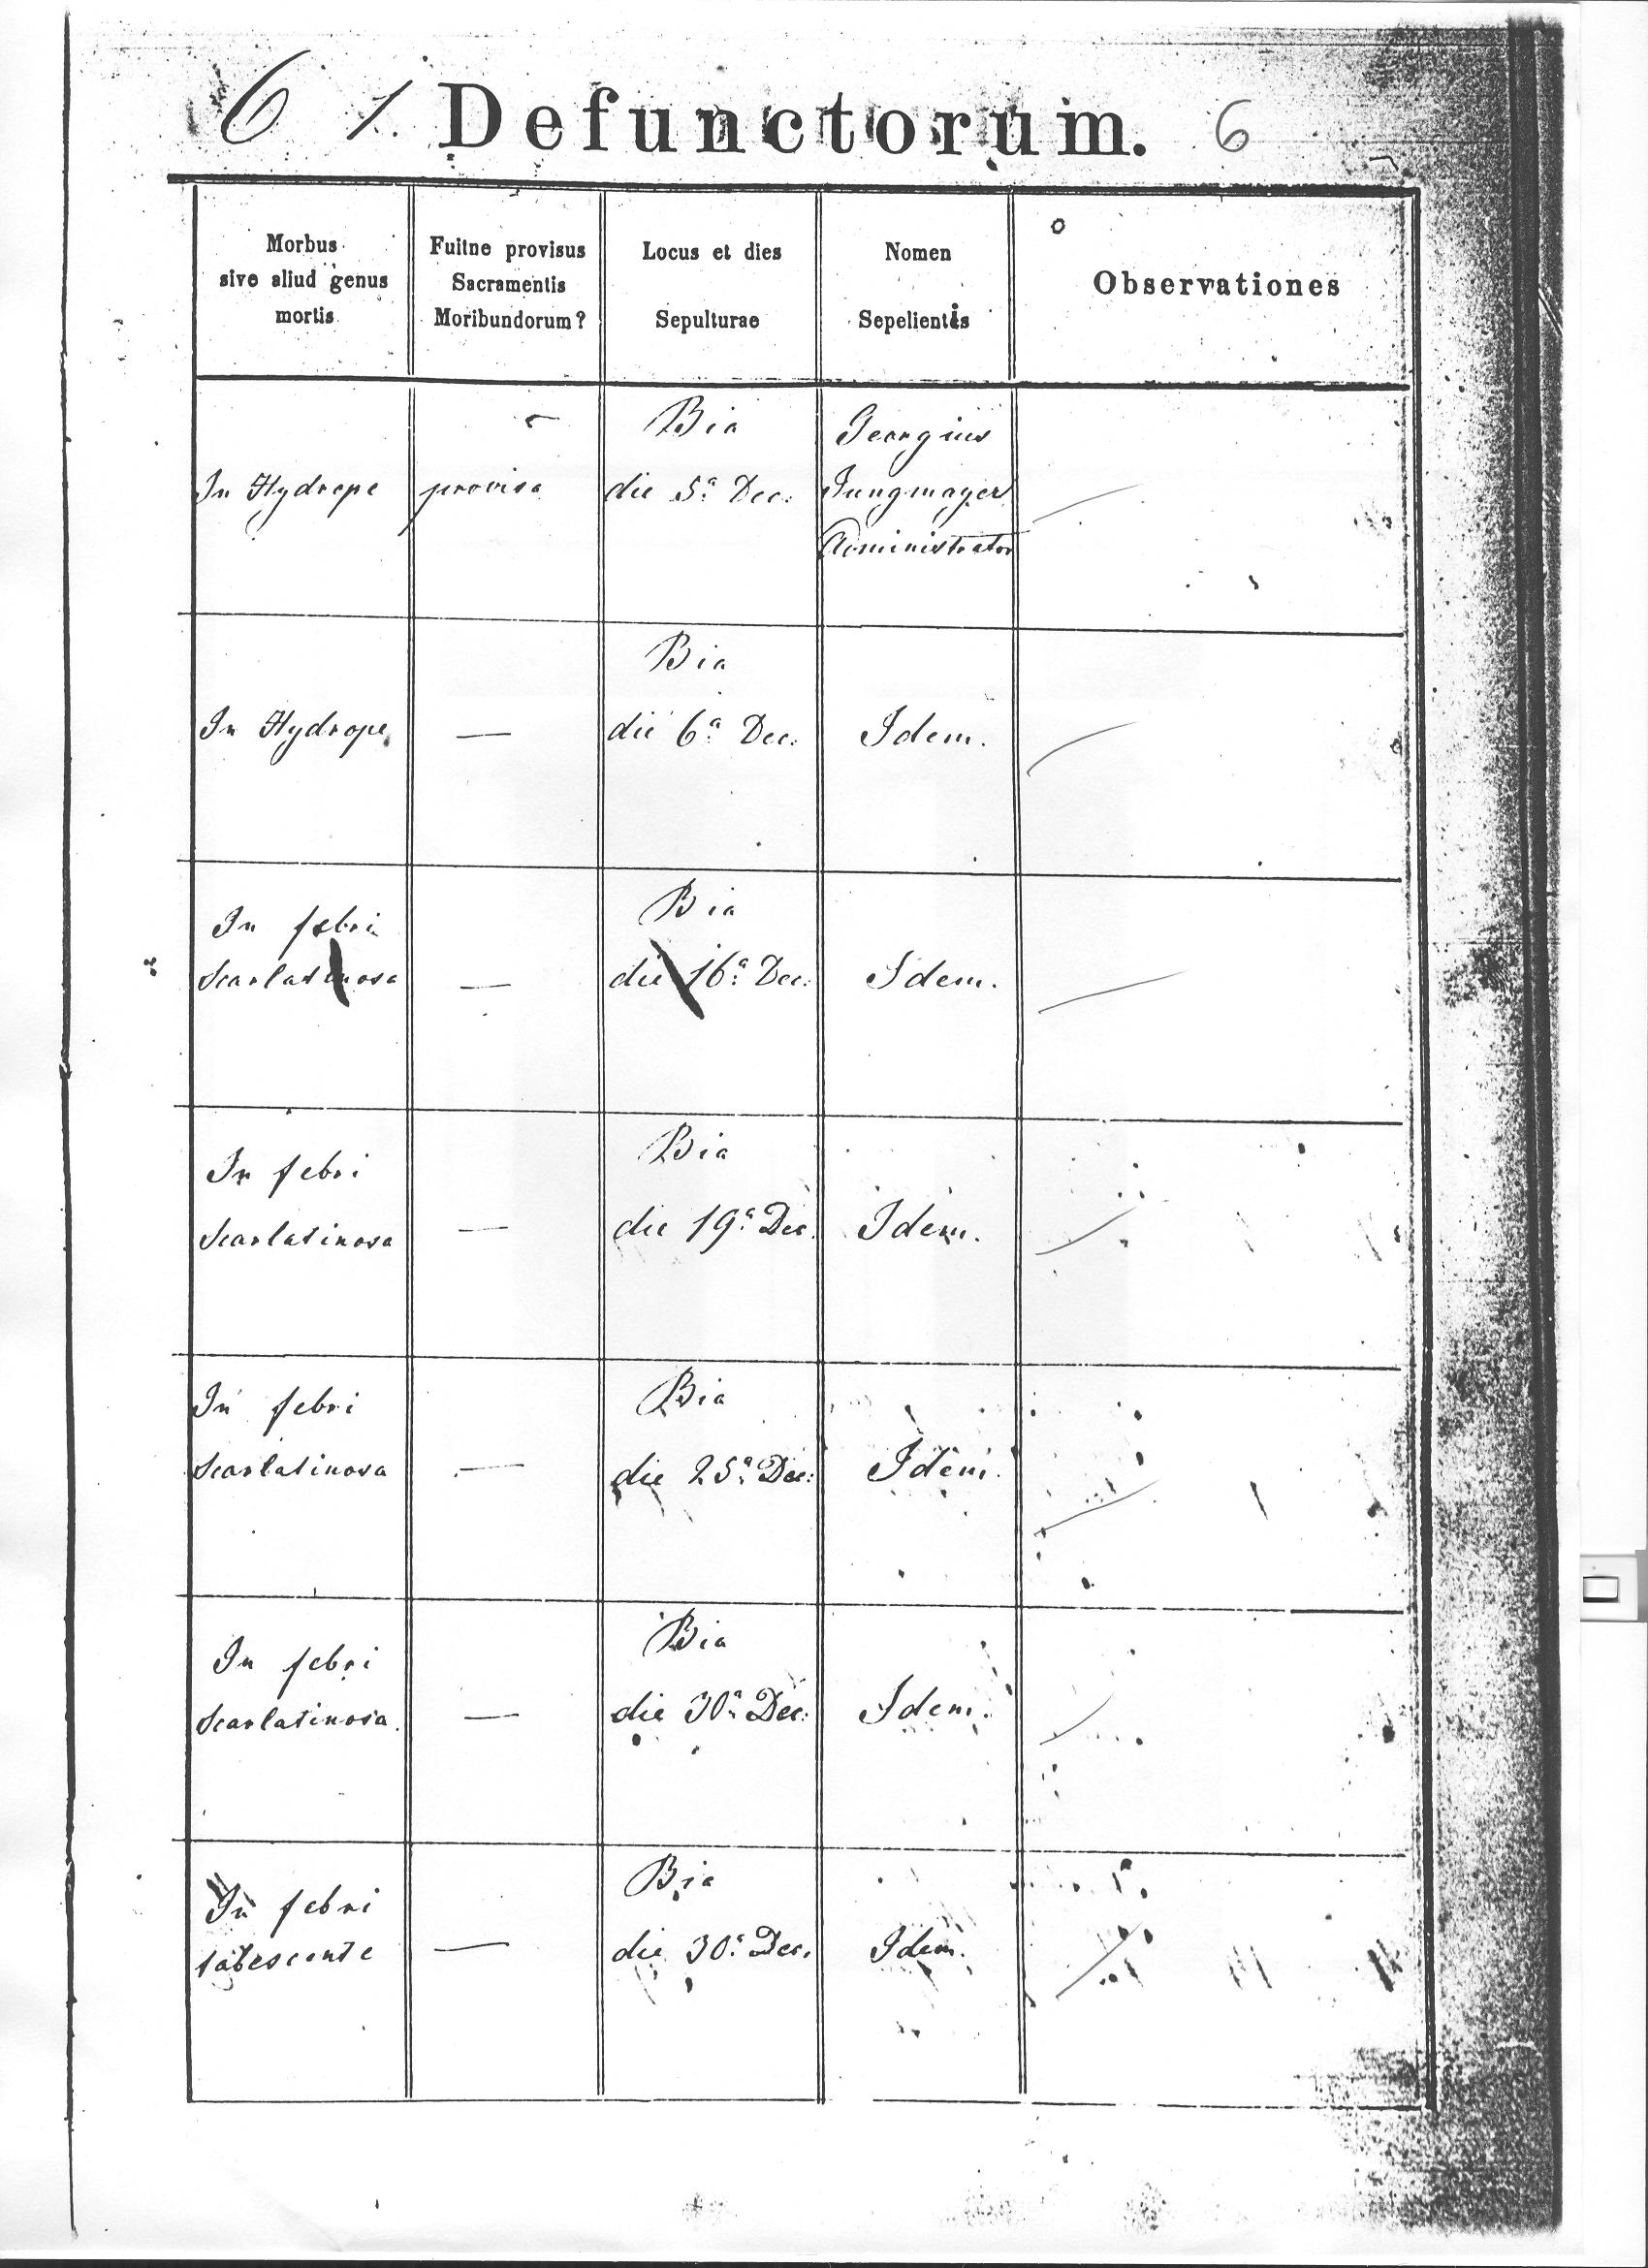 6 1. Defunctorum. 6
Morbus
sive aliud genus
mortis
Fuitne provisus
Sacramentis
Moribundorum?
Locus et dies
Sepulturae
Nomen
Sepelientis
Observationes
In Hydrope
provisa
Bia
die 5ª Dec:
Georgius
Jungmayer
Administrator
In Hydrope
—
Bia
die 6ª Dec.
Idem.
In febri
Scarlatinosa
—
Bia
die 16ª Dec:
Idem.
In febri
Scarlatinosa
—
Bia
die 19ª Dec.
Idem.
In febri
Scarlatinosa
—
Bia
die 25ª Dec:
Idem.
In febri
Scarlatinosa.
—
Bia
die 30ª Dec:
Idem.
In febri
tabescente
—
Bia
die 30ª Dec.
Idem.